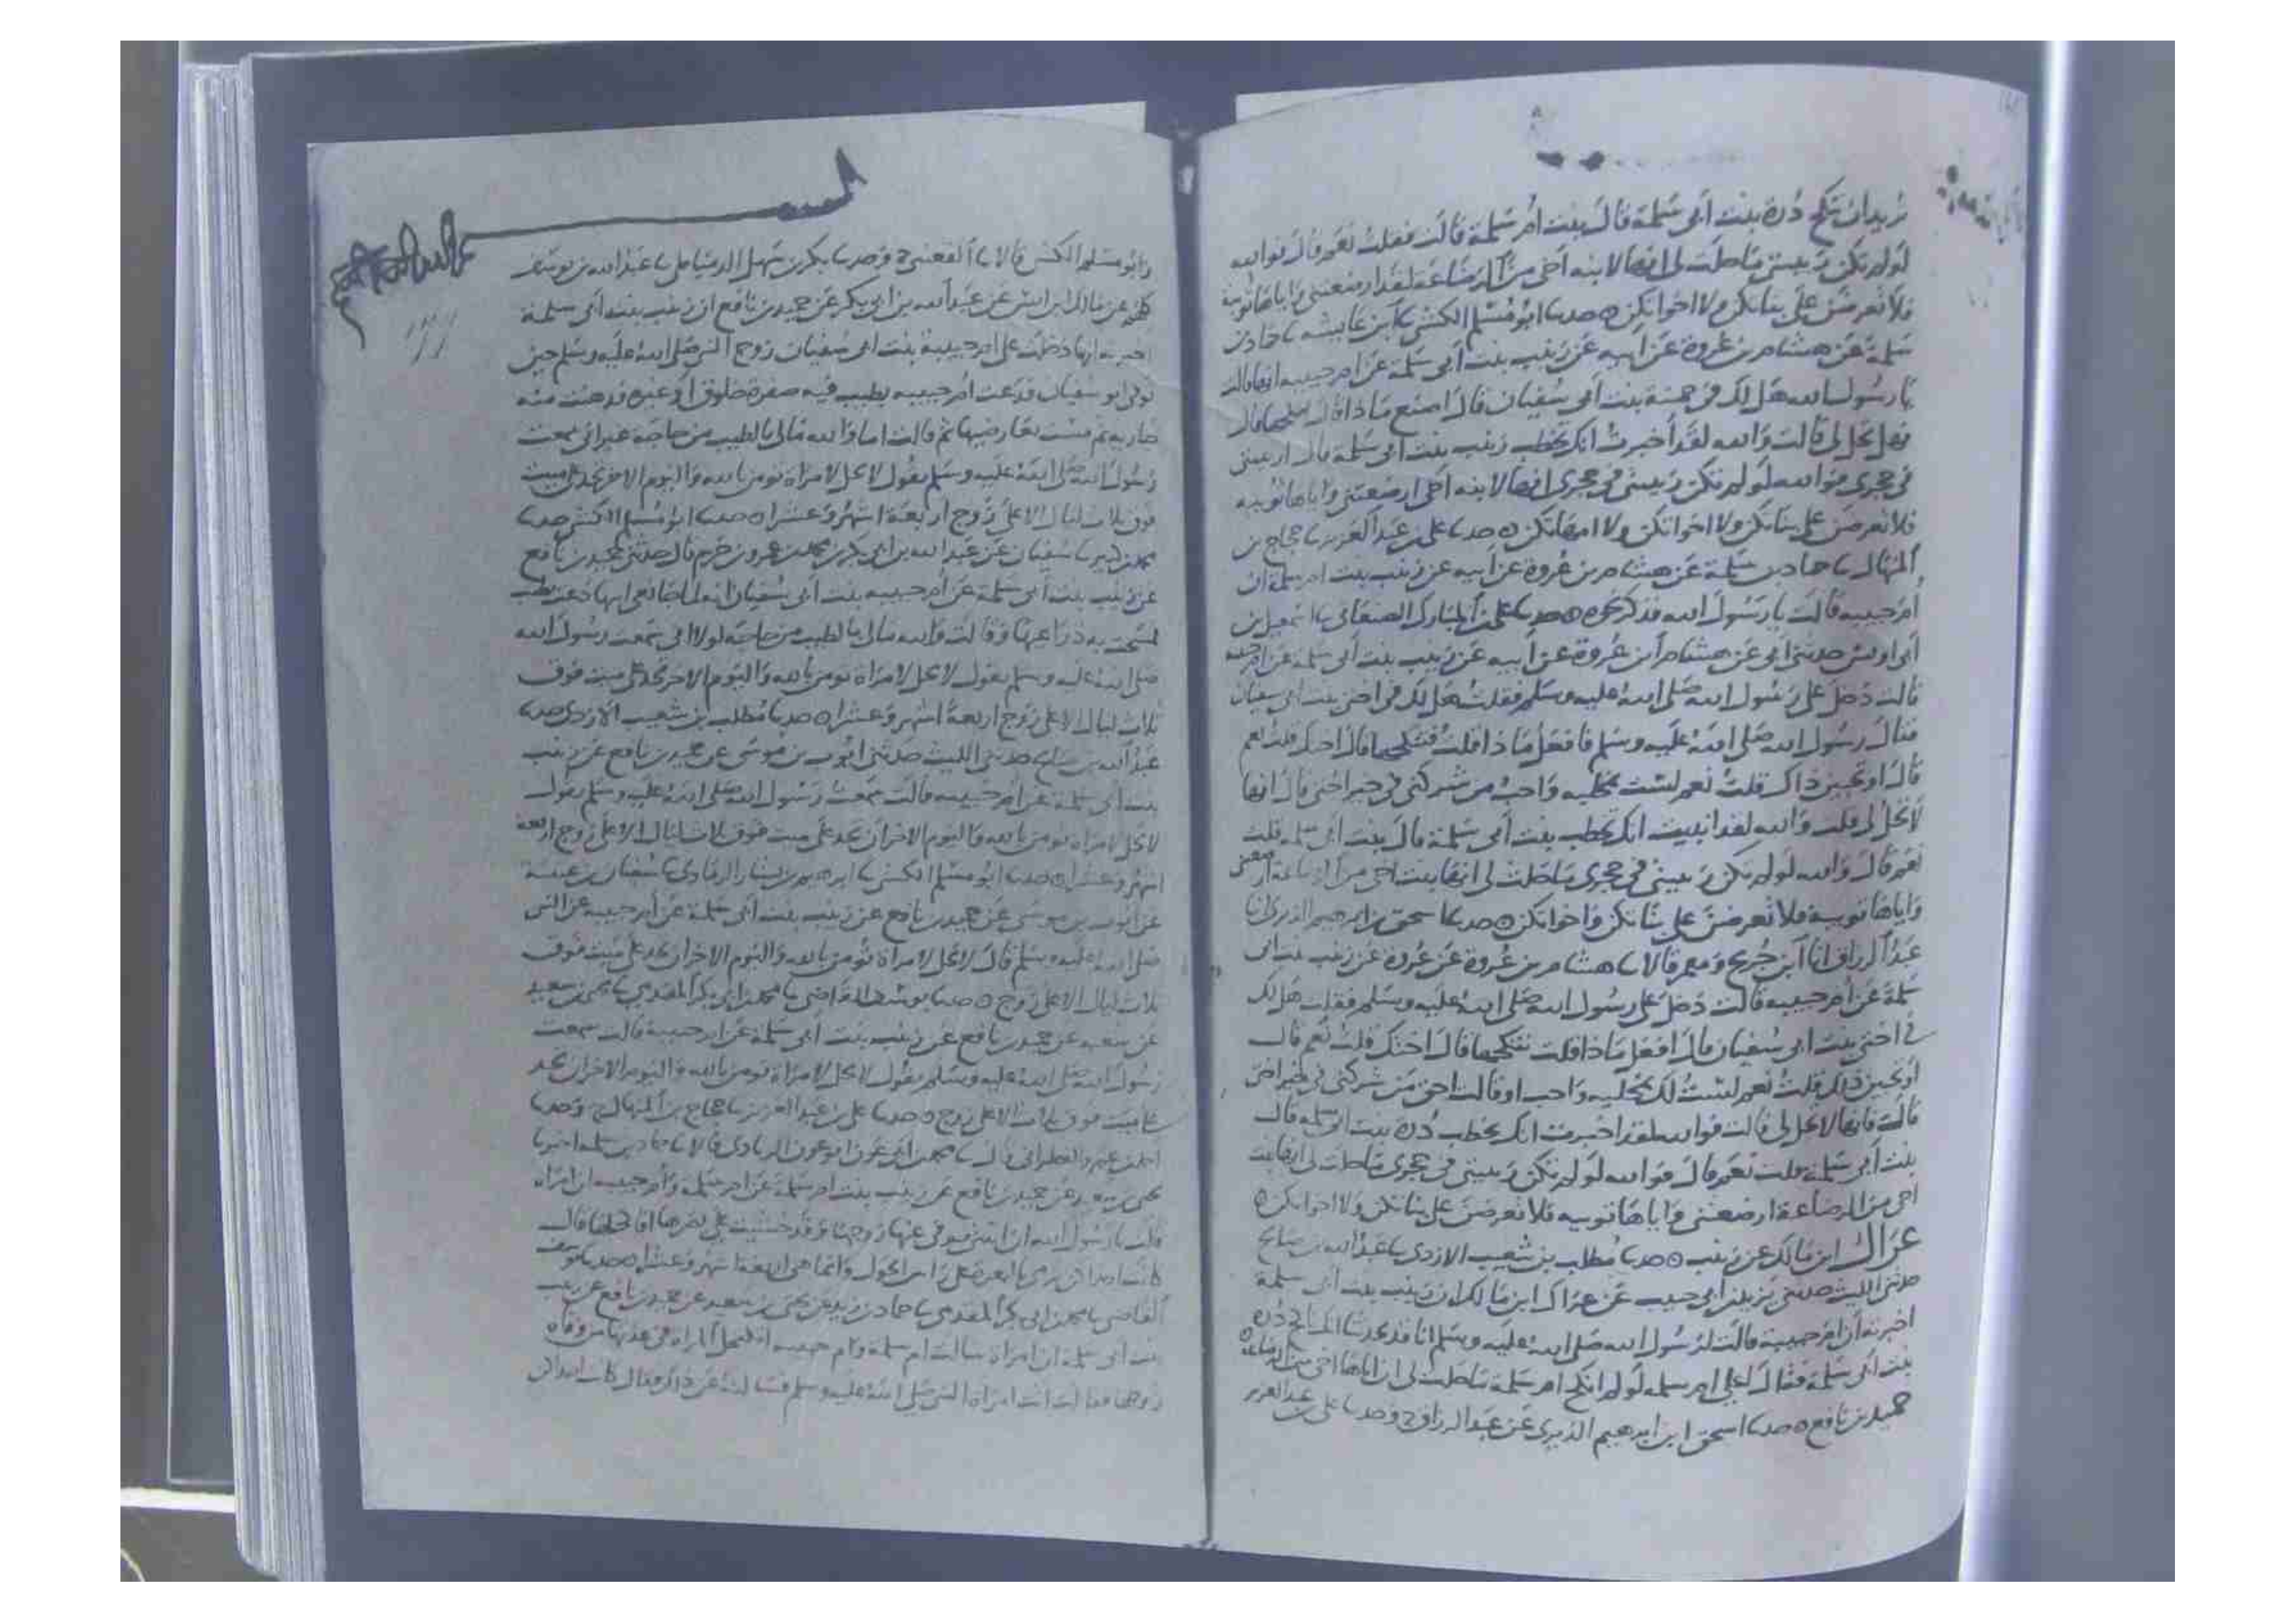 تريد ان تنكح دُرة بنت أبي سَلمة قالَ بنت امُ سَلمة قالت فقلتُ نعَم قالَ فوالله
لو لم تكن رَبيبتي مَا حلت لي انها لابنة أخي من الرضاعَة لقد ارضعتني وَاياهَا ثويبة
فلا تعرضنَ عليّ بناتكن ولا اخواتكن ه حدثنا ابُو مُسْلم الكشي ثنا ابن عَايشه ثنا حماد بن
سَلمة عَن هشام بن عُروة عَن أبيه عَن زينب بنت أبي سَلمة عن ام حبيبه انها قالت
يَا رسُول الله هَل لك في حمنة بنت ابي سُفيان قال اصنع مَاذا قالت تنكحها قال
فهل تحل لي قالت وَالله لقد أخبرتُ انك تخطب زينب بنت ابي سَلمة قال
في حجري فوالله لو لم تكن رَبيبتي في حجري انها لابنه أخي ارضعتني وَاياها ثُويبه
فلا تعرضن علي بناتكن ولا اخواتكن ولا امهاتكن ه حدثنا علي بن عَبد العَزيز ثنا حجاج بن
المنهال ثنا حماد بن سَلمة عَن هشام بن عُروة عَن أبيه عن زينب بنت ام سلمة ان
ام حبيبه قالت يا رَسُولَ الله فذكر نحوه ه حدثنا علي بن المبارك الصنعاني ثنا اسمعيل بن
أبي اويس حدثني أبي عَن هشام ابن عُروة عن أبيه عن زينب بنت أبي سلمة عن ام حبيبه
قالت دَخلَ علي رَسُول الله صَلى الله عليه وسَلم فقلتُ هَل لك في اختي بنت ابي سفيان
فقالَ رسُول الله صَلى الله عليه وسَلم فافعل مَاذا قلتُ فتنكحها قالَ اختك قلت نعم
قالَ او تحبين ذاك قلتُ نعم لسْت بمخليه وَاحبُ من شركني في خير اختي قالَ انها
لا تحلُ لي قلت وَالله لقد انبيت انك تخطب بنت أبي سَلمة قال بنت أبي سلمه قلت
نعَم قالَ وَالله لو لم تكن رَبيبتي في حجري مَا حَلت لي انها بنت اخي من الرضاعة ارضعتني
وَاياها ثويبة فلا تعرضنَ علي بناتكن وَاخواتكن ه حدثنا اسحق بن ابرهيم الدبري انا
عَبدُ الرزاق انا ابن جُريج وَمعمر قالا ثنا هشام بن عُروة عَن عُروة عَن زينب بنت ابي
سَلمة عَن ام حبيبه قالت دَخل عَلي رسُول الله صَلى الله عليه وسَلم فقلت هَل لك
في اختي بنت ابي سُفيان قالَ افعل مَاذا قلت تنكحها قالَ اختك قلتُ نعَم قال
أو تحبين ذلك قلتُ نعم لسْتُ لك بمخليه وَاحب او قالت احق مَن شركني في خير اختي
قالت فانها لا تحل لي قالت فوالله لقد اخبرت انك تخطب دُرة بنت ابي سلمه قال
بنت أبي سَلمة قلت نعَم قالَ فوَالله لو لم تكن رَبيبتي في حجري مَا حلت لي انها بنت
اخي من الرضاعة ارضعتني وَاياهَا ثويبه فلا تعرضنَ عَلي بناتكن ولا اخواتكن ه
عراك ابن مَالك عن زينب ه حدثنا مُطلب بن شعيب الازدي ثنا عَبدُ الله بن صَالح
حدثني الليث حدثني يزيد بن أبي حبيب عَن عراك ابن مَالك ان زينب بنت أبي سلمة
اخبرته أن ام حبيبة قالت لرَسُول الله صَلى الله عليه وسَلم انا قد تحدثنا انك ناكح دُره
بنت أبي سَلمة فقالَ أعلي ام سلمه لو لم انكح ام سَلمة مَا حلت لي ان اباها اخي من الرضاعة ه
حميد بن نافع ه حدثنا اسحق ابن ابرهيم الدبري عَن عَبد الرزاق ح وَحدثنا علي بن عبد العزيز
وَابُو مسْلم الكشي قالا ثنا القعنبي ح وَحدثنا بكر بن سَهل الدمياطي ثنا عَبد الله بن يوسُف
كلهم عن مَالك ابن انس عَن عَبد الله بن ابي بكر عَن حميد بن نافع ان زينب بنت أبي سَلمة
اخبرته انها دخلت على ام حبيبة بنت ابي سُفيان زوج النبي صَلى الله عليه وسَلم حين
توفي ابو سفيان فدَعت ام حبيبه بطيب فيه صفرة خلوق او غيره فدهنت منه
جاريه ثم مسَت بعَارضيها ثم قالت اما وَالله مَا لي بالطيب من حاجَة غير اني سمعت
رَسُول الله صَلى الله عليه وسَلم يقُول لا يحل لامراة تومن بالله وَاليوم الاخر تحد على ميت
فوق ثلاث ليال الا على زوج اربعَة اشهُر وَعشرا ه حدثنا ابو مُسْلم الكشي حدثنا
محمد بن كثير ثنا سُفيان عَن عَبد الله بن ابي بكر بن محمد بن عَمرو بن حَزم قال حدثني حميد بن نافع
عن زينب بنت أبي سَلمة عَن أم حبيبه بنت أبي سُفيان انه لما جا نعي ابيها دَعت بطيب
فمسَحت به ذرَاعيهَا وَقالت وَالله مَا لي بالطيب من حاجَه لولا اني سَمعت رسُول الله
صَلى الله عليه وسَلم يقول لا يحل لامرَاة تومن بالله وَاليوم الاخر تحد على ميت فوق
ثلاث ليال الا على زوج اربعَة اشهر وَعشرا ه حدثنا مُطلب بن شعيب الازدي حدثنا
عَبدُ الله بن صَالح حدثني الليث حدثني ايُوب بن موسَى عن حميد بن نافع عَن زينب
بنت أبي سَلمة عن أم حبيبه قالت سَمعتُ رسُول الله صَلى الله عليه وسَلم يقول
لا يحل لامراة تومن بالله وَاليوم الاخر ان تحد على ميت فوق ثلاث ليال الا على زوج اربعة
اشهر وَعشرا ه حدثنا ابُو مسْلم الكشي ثنا ابرهيم بن بشار الرمادي ثنا سُفيان بن عيينة
عن ايُوب بن موسَى عَن حميد بن نافع عَن زينب بنت أبي سَلمة عَن أم حبيبه عن النبي
صَلى الله عليه وسَلم قالَ لا يحل لامراة تُومن بالله وَاليَوم الاخر ان تحد على ميت فوق
ثلاث ليال الا على زوج ه حدثنا يوسُف القاضِي ثنا محمد بن ابي بكر المقدمي ثنا يحيى بن سعيد
عَن شعبه عن حميد بن نافع عَن زينب بنت أبي سَلمة عَن ام حبيبة قالت سمعت
رَسُول الله صَلى الله عليه وسَلم يقُول لا يحل لامرَاة تومن بالله وَاليوم الاخر ان تحد
على ميت فوق ثلاث الا على زوج ه حدثنا علي بن عَبد العَزيز ثنا حجاج بن المنهال ح وَحدثنا
احمد بن عَمرو القطراني قالَ ثنا محمد بن ابي عَون ابو عَون الزيادي قالا ثنا حماد بن سلمه اخبرنا
يحيى بن سَعيد عَن حميد بن نافع عَن زينب بنت ام سَلمَة عَن ام سَلمة وَأم حبيبه ان امرَاة
قالت يا رَسُول الله ان ابنتي توفي عَنها زوجهَا وَقد خشيت على بصَرها افاكحلها قال
كانت احداكن ترمي بالبعرة على رَاس الحول وَانما هي اربعَة اشهر وَعشرا ه حدثنا يوسف
القَاضي ثنا محمد بن ابي بكر المقدمي ثنا حماد بن زيد عن يحيى بن سَعيد عَن حميد بن نافع عَن زينب
بنت ابي سَلمة ان امرَاة سَالت ام سلمة وَام حبيبه اتكتحل المراة في عدتها من وفاة
زوجها فقالت اتت امراة النبي صَلى الله عليه وسلم فسَالته عَن ذاك فقال كانت احداكن